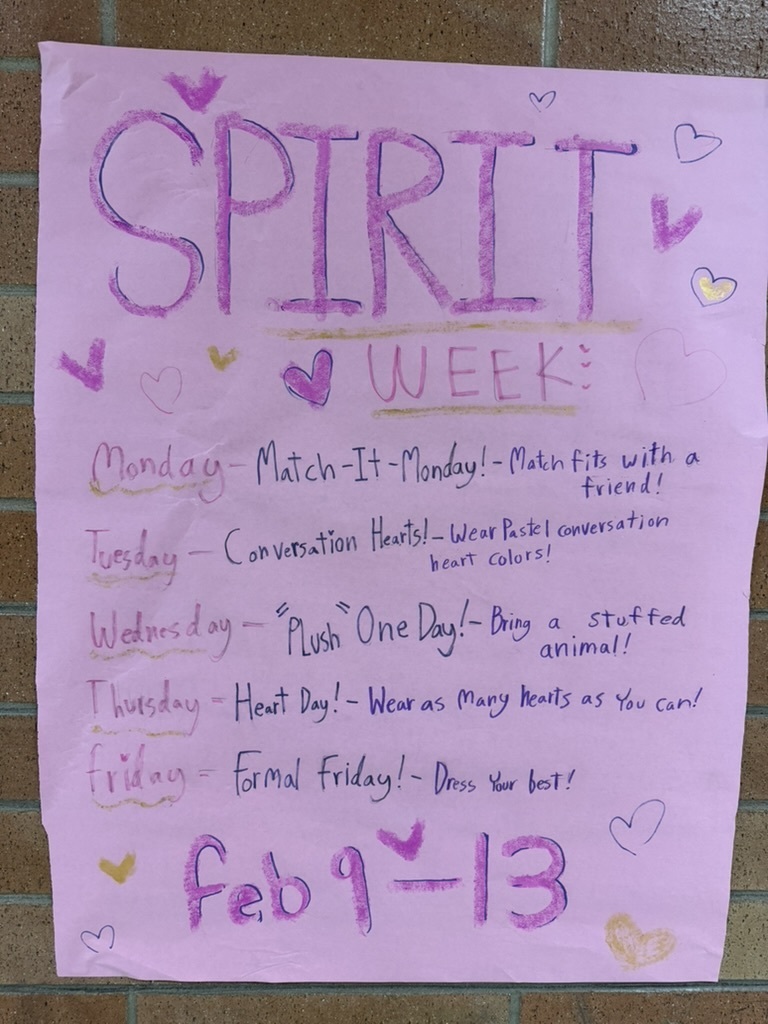 SPIRIT
WEEK:
Monday - Match-It-Monday! - Match fits with a
friend!
Tuesday - Conversation Hearts! - Wear Pastel conversation
heart colors!
Wednesday - "Plush" One Day! - Bring a stuffed
animal!
Thursday - Heart Day! - Wear as many hearts as you can!
Friday - Formal Friday! - Dress your best!
Feb 9-13